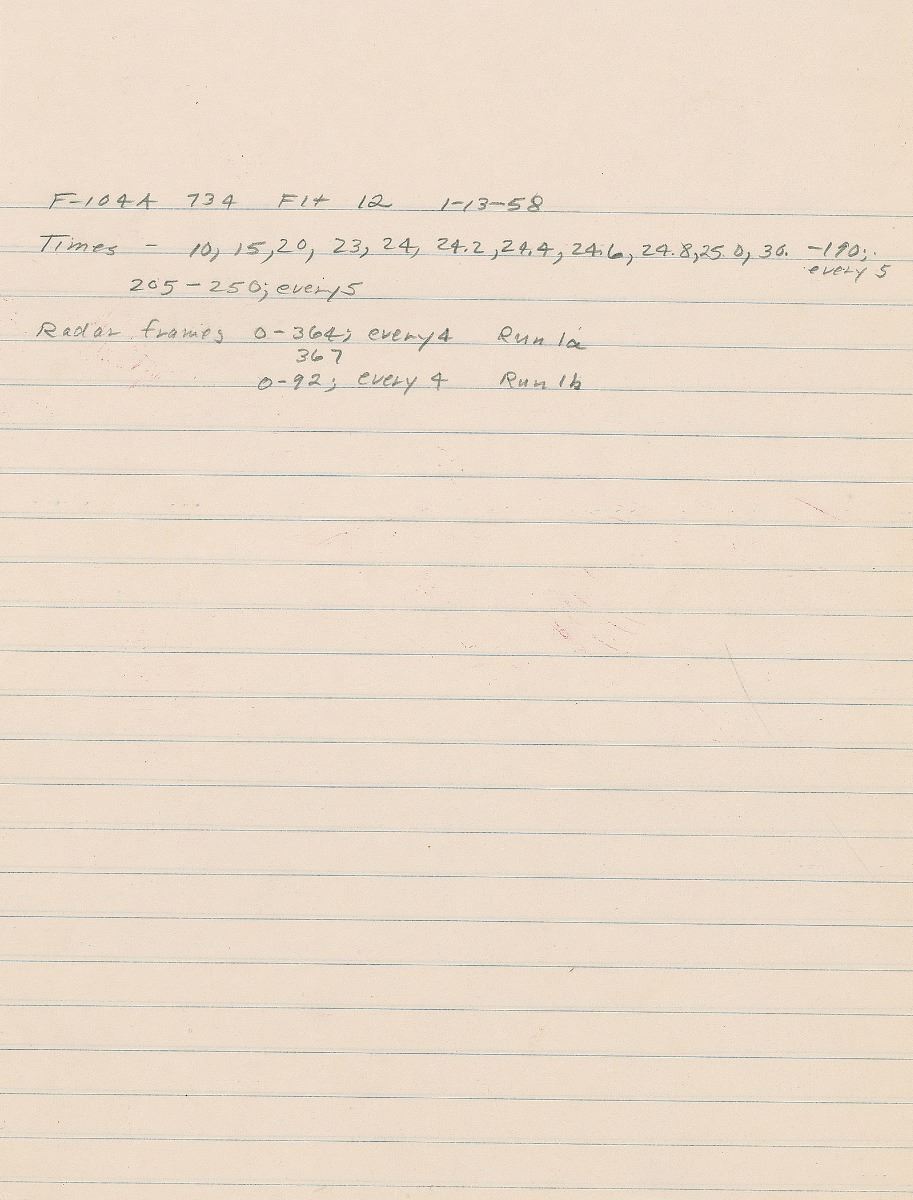 F-104A 734 Flt 12 1-13-58
Times - 10, 15, 20, 23, 24, 24.2, 24.4, 24.6, 24.8, 25.0, 30. -190;
every 5
205 - 250; every 5
Radar frames 0-364; every 4 Run 1a
367
0-92; every 4 Run 1b